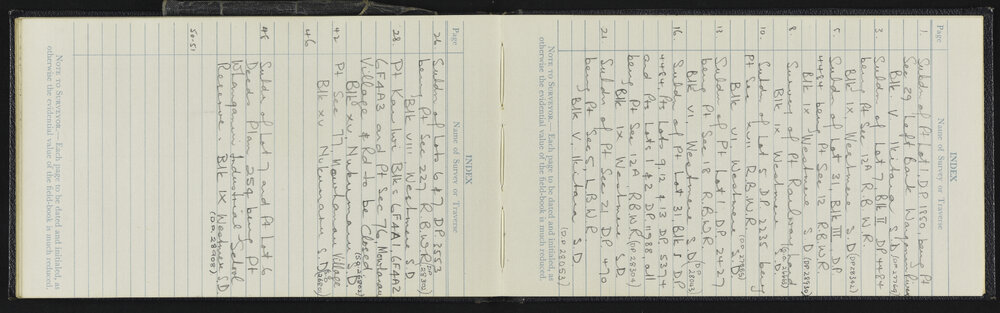 INDEX
Page
Name of Survey or Traverse
1. Subdn of Pt Lot 1, DP 1880, being Pt
Sec 29 Left Bank Wanganui River
Blk V Ikitara S.D.
3. Subdn of Lot 7 Blk II DP 4484
being Pt Sec 12A R.B.W.R.
Blk IX Westmere S.D.
5. Subdn of Lot 31, Blk III DP
4484 being Pt Sec 12 R.B.W.R
Blk IX Westmere S.D. (DP. 28930)
8. Survey of Pt Railway
Blk IX Westmere S.D.
10. Subdn of Lot 5 DP 2235 being
Pt Sec R.B.W.R.
Blk VI, Westmere S.D.
13. Subdn of Pt Lot 1, DP 2427
being Pt Sec 18 R.B.W.R
Blk VI, Westmere S.D.
16. Subdn of Pt Lot 31, Blk I DP
4484, Pt Lots 9, 12 & 13 DP. 5374
and Pts Lots 1 & 2 DP. 11988, all
being Pt Sec 12A, R.B.W.R. (DP. 28304)
Blk IX Westmere S.D.
21. Subdn of Pt Sec 21 DP 470
being Pt Sec 5, L.B.W.R.
Blk V, Ikitara S.D.
(D.P. 28053)
NOTE TO SURVEYOR.—Each page to be dated and initialed, as
otherwise the evidential value of the field-book is much reduced.
INDEX
Page
Name of Survey or Traverse
26. Subdn of Lots 6 & 7 DP. 2553
being Pt Sec 227 R.B.W.R.
Blk VIII Westmere S.D.
28. Pt Kaiwi Blks 6F4A1, 6F4A2
6F4A3 and Pt Sec 76 Mowhanau
Village & Rd to be Closed
Blk XV, Nukumaru S.D.
42. Pt Sec 77 Mowhanau Village
Blk XV Nukumaru S.D.
46
48 Subdn of Lot 7 and Pt Lot 6
Deeds Plan 259 being Pt
Whanganui Industrial School
Reserve. Blk IX Westmere S.D.
(D.P. 28908)
50-51
NOTE TO SURVEYOR.—Each page to be dated and initialed, as
otherwise the evidential value of the field-book is much reduced.